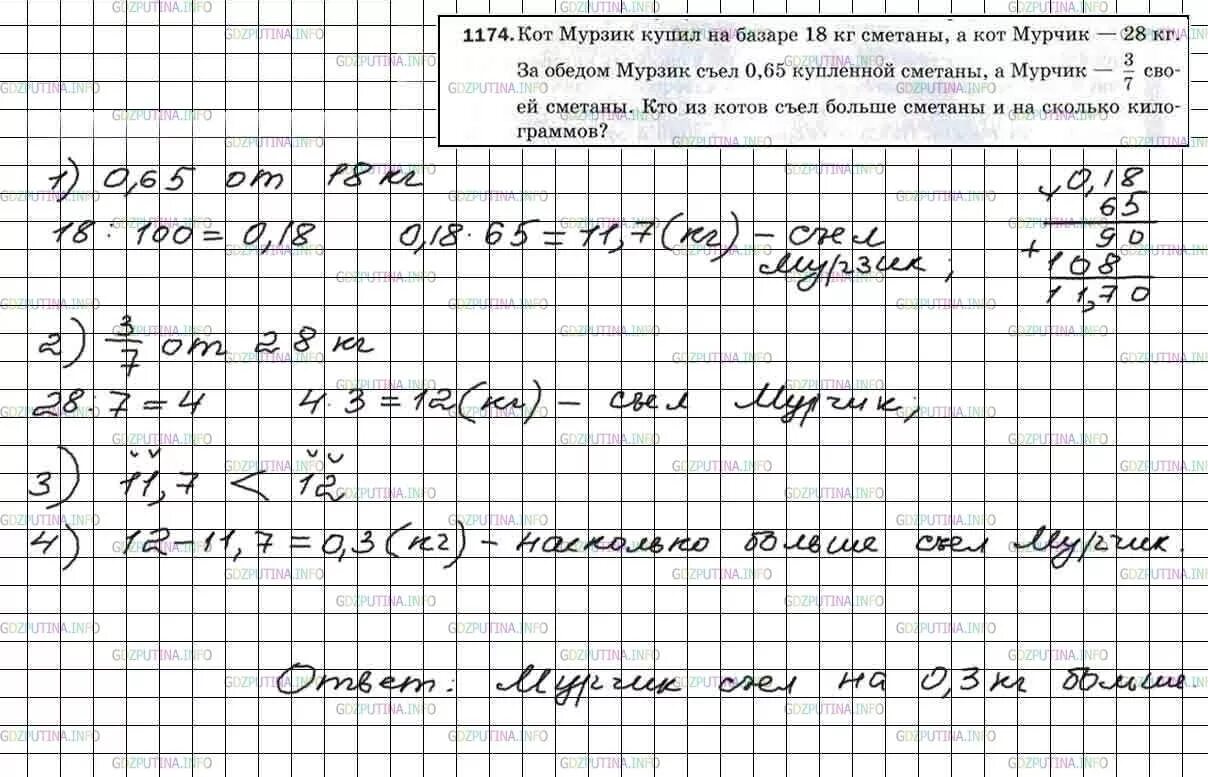 1174. Кот Мурзик купил на базаре 18 кг сметаны, а кот Мурчик — 28 кг.
За обедом Мурзик съел 0,65 купленной сметаны, а Мурчик — 3/7 сво-
ей сметаны. Кто из котов съел больше сметаны и на сколько кило-
граммов?
1) 0,65 от 18 кг
18 : 100 = 0,18 0,18 · 65 = 11,7 (кг) – съел
Мурзик ;
× 0,18
65
+ 90
108
11,70
2) 3/7 от 28 кг
28 : 7 = 4 4 · 3 = 12 (кг) – съел Мурчик;
3) 11,7 < 12
4) 12 – 11,7 = 0,3 (кг) – насколько больше съел Мурчик.
Ответ: Мурчик съел на 0,3 кг больше.
GDZPUTINA.INFO